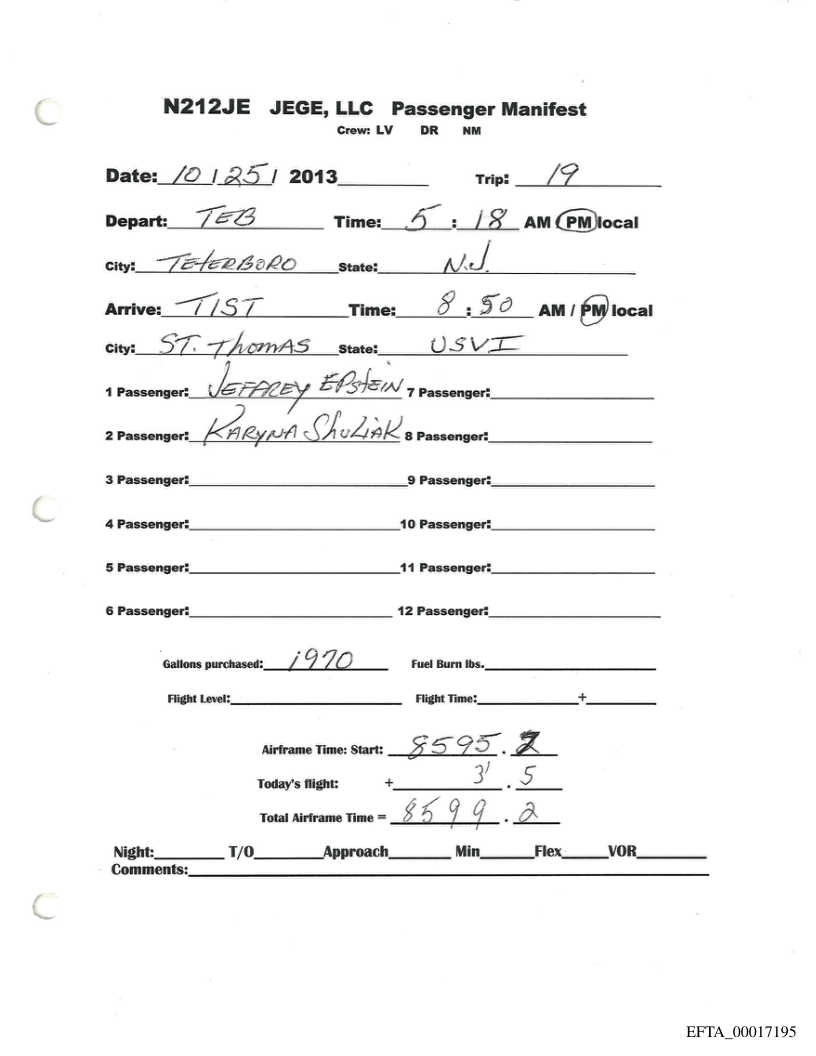 N212JE JEGE, LLC Passenger Manifest
Crew: LV DR NM
Date: 10 / 25 / 2013 Trip: 19
Depart: TEB Time: 5 : 18 AM PM local
City: TETERBORO State: N.J.
Arrive: TIST Time: 8 : 50 AM / PM local
City: ST. THOMAS State: USVI
1 Passenger: JEFFREY EPSTEIN 7 Passenger:
2 Passenger: KARYNA SHULIAK 8 Passenger:
3 Passenger: 9 Passenger:
4 Passenger: 10 Passenger:
5 Passenger: 11 Passenger:
6 Passenger: 12 Passenger:
Gallons purchased: 1970 Fuel Burn lbs.
Flight Level: Flight Time: +
Airframe Time: Start: 8595 .
Today's flight: + 3 . 5
Total Airframe Time = 8599 . 2
Night: T/O Approach Min Flex VOR
Comments:
EFTA_00017195